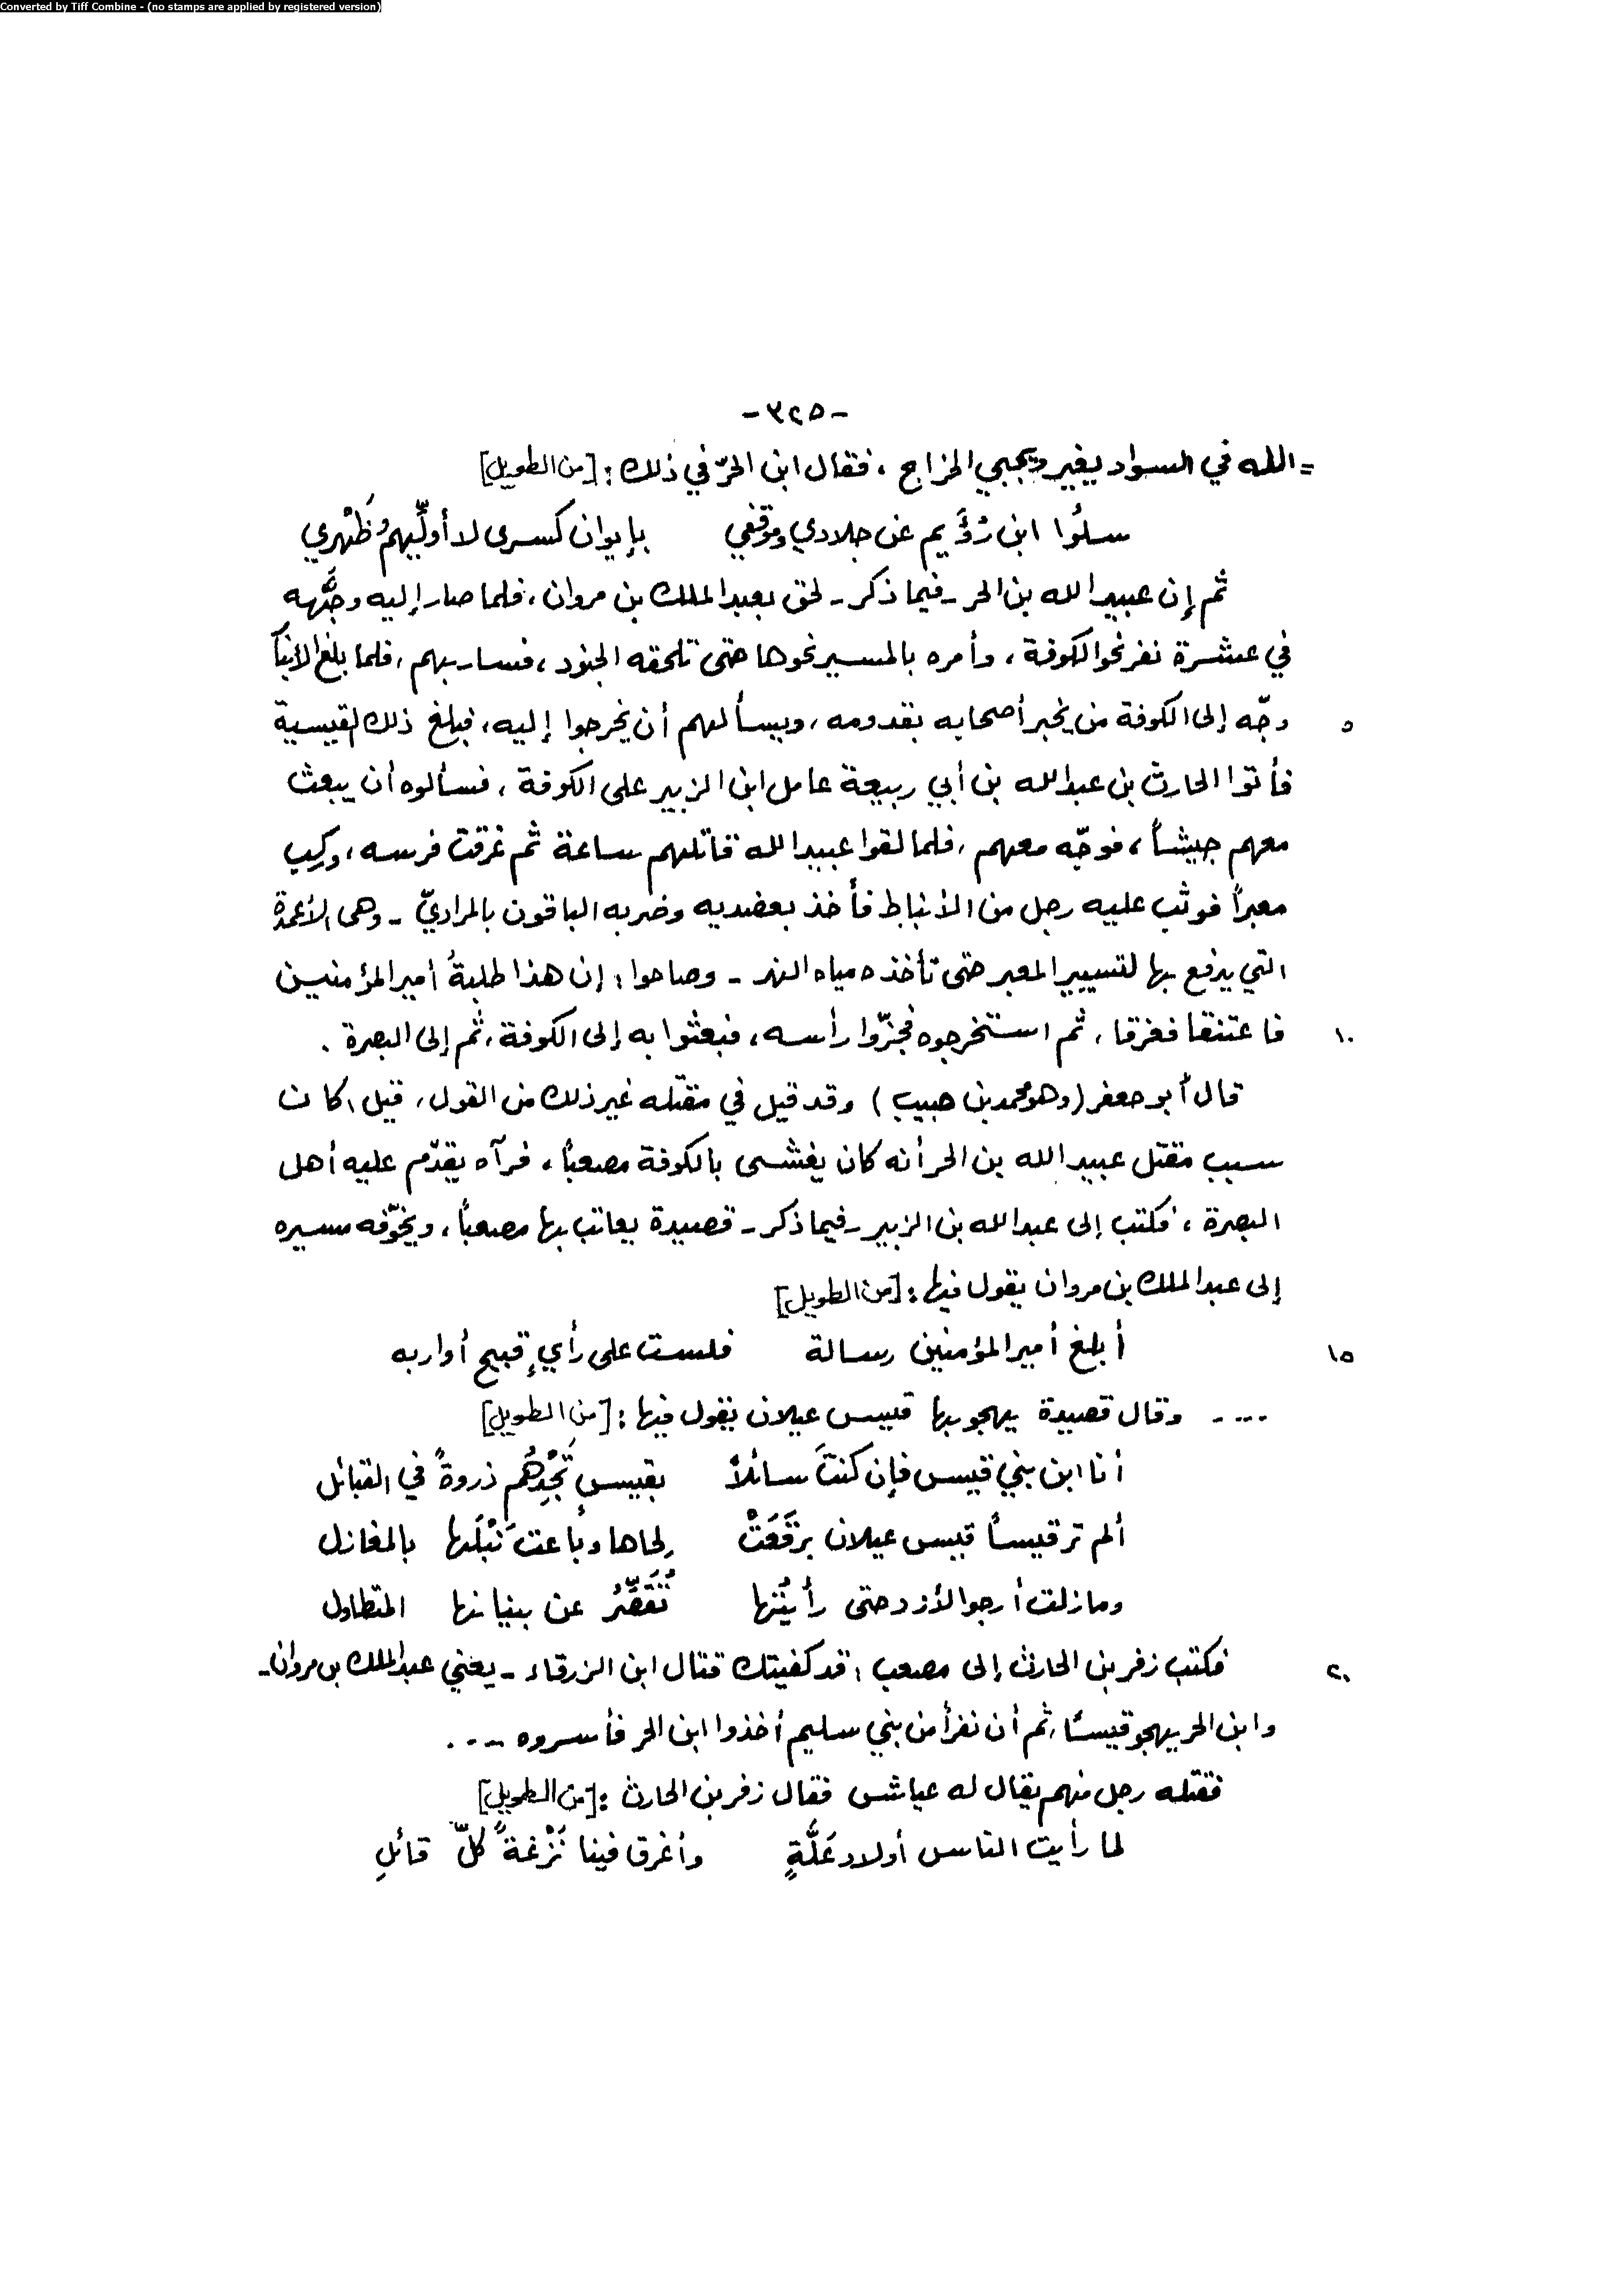 Converted by Tiff Combine - (no stamps are applied by registered version)
-٣٢٥-
= الله في السواد يغير ويجبي الخراج ، فقال ابن الحرّ في ذلك : [من الطويل]
سلُوا ابن رُؤَيم عن جلادي وموقفي بإيوان كسرى لا أولِّيهمُ ظَهْري
ثم إن عبيد الله بن الحر - فيما ذكر - لحق بعبد الملك بن مروان ، فلما صار إليه وجَّهه
في عشرة نفر نحو الكوفة ، وأمره بالمسير نحوها حتى تلحقه الجنود ، فسار بهم ، فلما بلغ الأنبار
٥ وجّه إلى الكوفة من يخبر أصحابه بقدومه ، ويسألهم أن يخرجوا إليه ، فبلغ ذلك القيسية
فأتوا الحارث بن عبد الله بن أبي ربيعة عامل ابن الزبير على الكوفة ، فسألوه أن يبعث
معهم جيشاً ، فوجّه معهم ، فلما لقوا عبيد الله قاتلهم ساعة ثم غرقت فرسه ، وركب
معبراً فوثب عليه رجل من الأنباط فأخذ بعضديه وضربه الباقون بالمراديّ - وهي الأعمدة
التي يدفع بها لتسيير المعبر حتى تأخذه مياه النهر - وصاحوا : إن هذا طلبةُ أمير المؤمنين
١٠ فاعتنقا فغرقا ، ثم استخرجوه فجزّوا رأسه ، فبعثوا به إلى الكوفة ، ثم إلى البصرة .
قال أبو جعفر (وهو محمد بن حبيب) وقد قيل في مقتله غير ذلك من القول ، قيل : كان
سبب مقتل عبيد الله بن الحر أنه كان يغشى بالكوفة مصعباً ، فرآه يقدّم عليه أهل
البصرة ، فكتب إلى عبد الله بن الزبير - فيما ذكر - قصيدة يعاتب بها مصعباً ، ويخوّفه مسيره
إلى عبد الملك بن مروان يقول فيها : [من الطويل]
١٥ أبلغ أمير المؤمنين رسالة فلست على رأيٍ قبيح أواربه
.... وقال قصيدة يهجو بها قيس عيلان يقول فيها : [من الطويل]
أنا ابن بني قيس فإن كنتَ سائلاً بقيسٍ تَجِدْهُم ذروةً في القبائل
ألم تر قيساً قيس عيلان برقَعَتْ لحاها وباعت نَبْلَها بالمغازل
وما زلت أرجو الأزد حتى رأيتُها تُقَصِّرُ عن بنيانها المتطاول
٢٠ فكتب زفر بن الحارث إلى مصعب : قد كفيتك قتال ابن الزرقاء - يعني عبد الملك بن مروان -
وابن الحر يهجو قيسًا ، ثم أن نفراً من بني سليم أخذوا ابن الحر فأسروه ....
فقتله رجل منهم يقال له عياش فقال زفر بن الحارث : [من الطويل]
لما رأيت الناس أولاد عَلَّةٍ وأغرق فينا نَزْغةً كلّ قائلِ